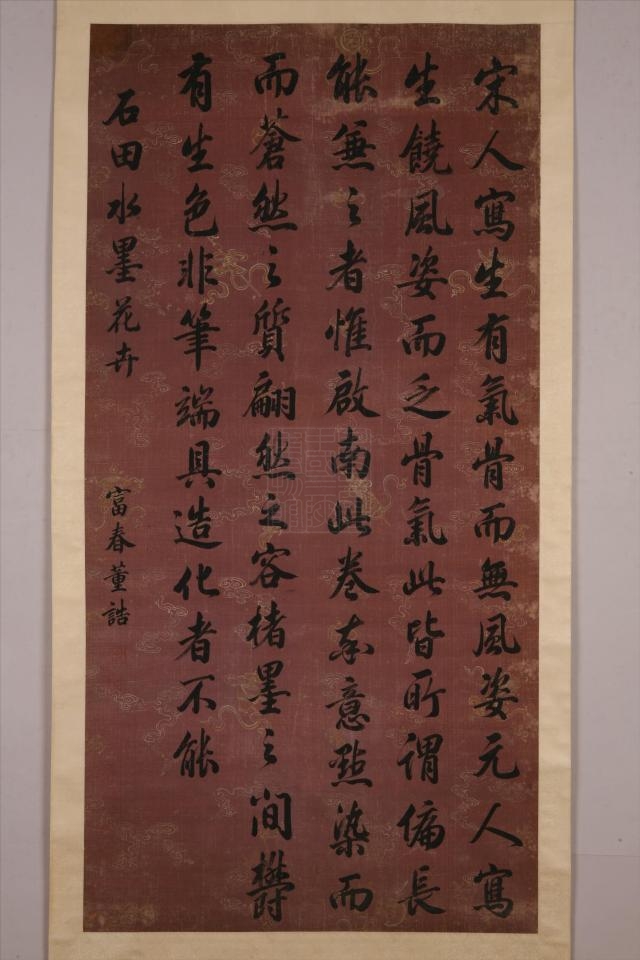 宋人寫生有氣骨而無風姿元人寫
生饒風姿而乏骨氣此皆所謂偏長
能兼之者惟啟南此卷率意點染而
而蒼然之質翩然之容楮墨之間欝
有生色非筆端具造化者不能
石田水墨花卉
富春董誥